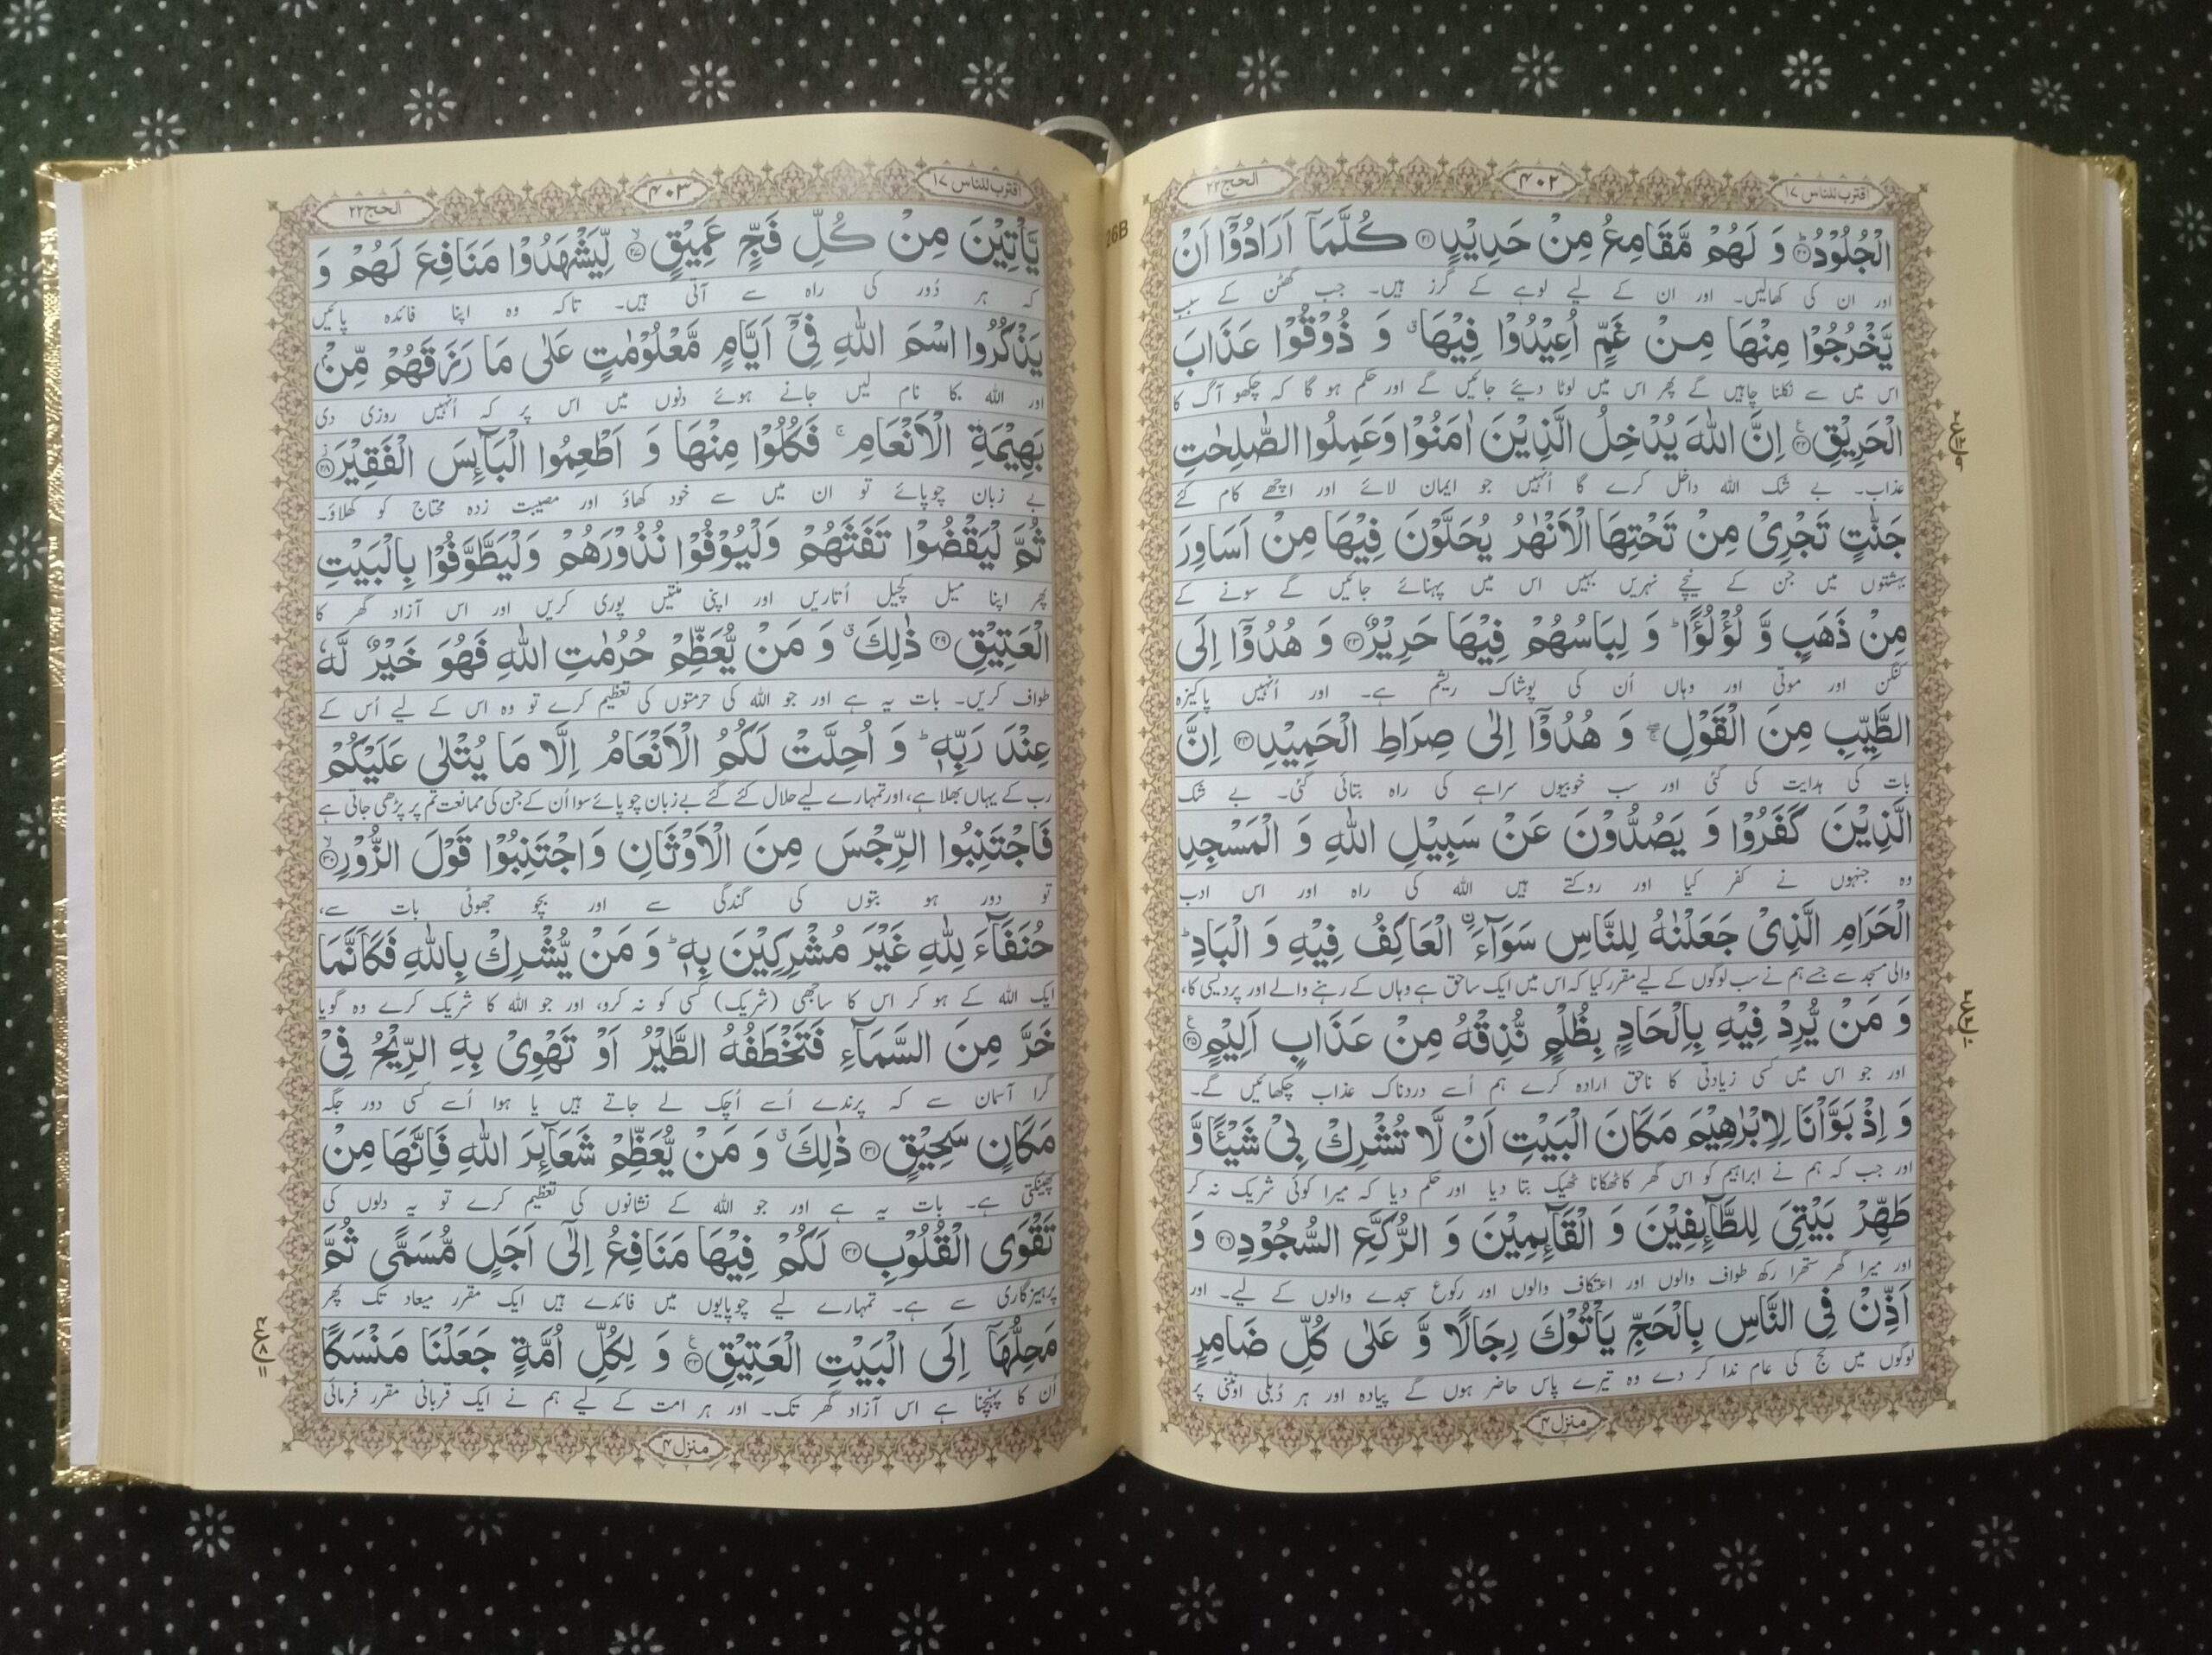 اقترب للناس ۱۷
۴۰۲
الحج ۲۲
الْجُلُوْدُ ؕ۲۰ وَ لَهُمْ مَّقَامِعُ مِنْ حَدِيْدٍ ۲۱ كُلَّمَاۤ اَرَادُوْۤا اَنْ
اور ان کی کھالیں۔ اور ان کے لیے لوہے کے گرز ہیں۔ جب گھٹن کے سبب
يَّخْرُجُوْا مِنْهَا مِنْ غَمٍّ اُعِيْدُوْا فِيْهَا ۗ وَ ذُوْقُوْا عَذَابَ
اس میں سے نکلنا چاہیں گے پھر اس میں لوٹا دیئے جائیں گے اور حکم ہو گا کہ چکھو آگ کا
الْحَرِيْقِ ۲۲ اِنَّ اللّٰهَ يُدْخِلُ الَّذِيْنَ اٰمَنُوْا وَعَمِلُوا الصّٰلِحٰتِ
عذاب۔ بے شک اللہ داخل کرے گا اُنہیں جو ایمان لائے اور اچھے کام کئے
جَنّٰتٍ تَجْرِيْ مِنْ تَحْتِهَا الْاَنْهٰرُ يُحَلَّوْنَ فِيْهَا مِنْ اَسَاوِرَ
بہشتوں میں جن کے نیچے نہریں بہیں اس میں پہنائے جائیں گے سونے کے
مِنْ ذَهَبٍ وَّ لُؤْلُؤًا ؕ وَ لِبَاسُهُمْ فِيْهَا حَرِيْرٌ ۲۳ وَ هُدُوْۤا اِلَى
کنگن اور موتی اور وہاں اُن کی پوشاک ریشم ہے۔ اور اُنہیں پاکیزہ
الطَّيِّبِ مِنَ الْقَوْلِ ۖۚ وَ هُدُوْۤا اِلٰى صِرَاطِ الْحَمِيْدِ ۲۴ اِنَّ
بات کی ہدایت کی گئی اور سب خوبیوں سراہے کی راہ بتائی گئی۔ بے شک
الَّذِيْنَ كَفَرُوْا وَ يَصُدُّوْنَ عَنْ سَبِيْلِ اللّٰهِ وَ الْمَسْجِدِ
وہ جنہوں نے کفر کیا اور روکتے ہیں اللہ کی راہ اور اس ادب
الْحَرَامِ الَّذِيْ جَعَلْنٰهُ لِلنَّاسِ سَوَآءَ ۨالْعَاكِفُ فِيْهِ وَ الْبَادِ ؕ
والی مسجد سے جسے ہم نے سب لوگوں کے لیے مقرر کیا کہ اس میں ایک سا حق ہے وہاں کے رہنے والے اور پردیسی کا،
وَ مَنْ يُّرِدْ فِيْهِ بِاِلْحَادٍۭ بِظُلْمٍ نُّذِقْهُ مِنْ عَذَابٍ اَلِيْمٍ ۲۵
اور جو اس میں کسی زیادتی کا ناحق ارادہ کرے ہم اُسے دردناک عذاب چکھائیں گے۔
وَ اِذْ بَوَّاْنَا لِاِبْرٰهِيْمَ مَكَانَ الْبَيْتِ اَنْ لَّا تُشْرِكْ بِيْ شَيْـًٔا وَّ
اور جب کہ ہم نے ابراہیم کو اس گھر کا ٹھکانا ٹھیک بتا دیا اور حکم دیا کہ میرا کوئی شریک نہ کر
طَهِّرْ بَيْتِيَ لِلطَّآىِٕفِيْنَ وَ الْقَآىِٕمِيْنَ وَ الرُّكَّعِ السُّجُوْدِ ۲۶ وَ
اور میرا گھر ستھرا رکھ طواف والوں اور اعتکاف والوں اور رکوع سجدے والوں کے لیے۔ اور
اَذِّنْ فِي النَّاسِ بِالْحَجِّ يَاْتُوْكَ رِجَالًا وَّ عَلٰى كُلِّ ضَامِرٍ
لوگوں میں حج کی عام ندا کر دے وہ تیرے پاس حاضر ہوں گے پیادہ اور ہر دُبلی اونٹنی پر
منزل ۴
26B
اقترب للناس ۱۷
۴۰۳
الحج ۲۲
يَّاْتِيْنَ مِنْ كُلِّ فَجٍّ عَمِيْقٍ ۙ۲۷ لِّيَشْهَدُوْا مَنَافِعَ لَهُمْ وَ
کہ ہر دُور کی راہ سے آتی ہیں۔ تاکہ وہ اپنا فائدہ پائیں
يَذْكُرُوا اسْمَ اللّٰهِ فِيْۤ اَيَّامٍ مَّعْلُوْمٰتٍ عَلٰى مَا رَزَقَهُمْ مِّنْۢ
اور اللہ کا نام لیں جانے ہوئے دنوں میں اس پر کہ اُنہیں روزی دی
بَهِيْمَةِ الْاَنْعَامِ ۚ فَكُلُوْا مِنْهَا وَ اَطْعِمُوا الْبَآىِٕسَ الْفَقِيْرَ ۲۸
بے زبان چوپائے تو ان میں سے خود کھاؤ اور مصیبت زدہ محتاج کو کھلاؤ۔
ثُمَّ لْيَقْضُوْا تَفَثَهُمْ وَلْيُوْفُوْا نُذُوْرَهُمْ وَلْيَطَّوَّفُوْا بِالْبَيْتِ
پھر اپنا میل کچیل اُتاریں اور اپنی منتیں پوری کریں اور اس آزاد گھر کا
الْعَتِيْقِ ۲۹ ذٰلِكَ ۗ وَ مَنْ يُّعَظِّمْ حُرُمٰتِ اللّٰهِ فَهُوَ خَيْرٌ لَّهٗ
طواف کریں۔ بات یہ ہے اور جو اللہ کی حرمتوں کی تعظیم کرے تو وہ اس کے لیے اُس کے
عِنْدَ رَبِّهٖ ؕ وَ اُحِلَّتْ لَكُمُ الْاَنْعَامُ اِلَّا مَا يُتْلٰى عَلَيْكُمْ
رب کے یہاں بھلا ہے، اور تمہارے لیے حلال کئے گئے بے زبان چوپائے سوا اُن کے جن کی ممانعت تم پر پڑھی جاتی ہے
فَاجْتَنِبُوا الرِّجْسَ مِنَ الْاَوْثَانِ وَاجْتَنِبُوْا قَوْلَ الزُّوْرِ ۙ۳۰
تو دور ہو بتوں کی گندگی سے اور بچو جھوٹی بات سے،
حُنَفَآءَ لِلّٰهِ غَيْرَ مُشْرِكِيْنَ بِهٖ ؕ وَ مَنْ يُّشْرِكْ بِاللّٰهِ فَكَاَنَّمَا
ایک اللہ کے ہو کر اس کا ساجھی (شریک) کسی کو نہ کرو، اور جو اللہ کا شریک کرے وہ گویا
خَرَّ مِنَ السَّمَآءِ فَتَخْطَفُهُ الطَّيْرُ اَوْ تَهْوِيْ بِهِ الرِّيْحُ فِيْ
گرا آسمان سے کہ پرندے اُسے اُچک لے جاتے ہیں یا ہوا اُسے کسی دور جگہ
مَكَانٍ سَحِيْقٍ ۳۱ ذٰلِكَ ۗ وَ مَنْ يُّعَظِّمْ شَعَآىِٕرَ اللّٰهِ فَاِنَّهَا مِنْ
پھینکتی ہے۔ بات یہ ہے اور جو اللہ کے نشانوں کی تعظیم کرے تو یہ دلوں کی
تَقْوَى الْقُلُوْبِ ۳۲ لَكُمْ فِيْهَا مَنَافِعُ اِلٰۤى اَجَلٍ مُّسَمًّى ثُمَّ
پرہیزگاری سے ہے۔ تمہارے لیے چوپایوں میں فائدے ہیں ایک مقرر میعاد تک پھر
مَحِلُّهَاۤ اِلَى الْبَيْتِ الْعَتِيْقِ ۳۳ وَ لِكُلِّ اُمَّةٍ جَعَلْنَا مَنْسَكًا
اُن کا پہنچنا ہے اس آزاد گھر تک۔ اور ہر امت کے لیے ہم نے ایک قربانی مقرر فرمائی
منزل ۴